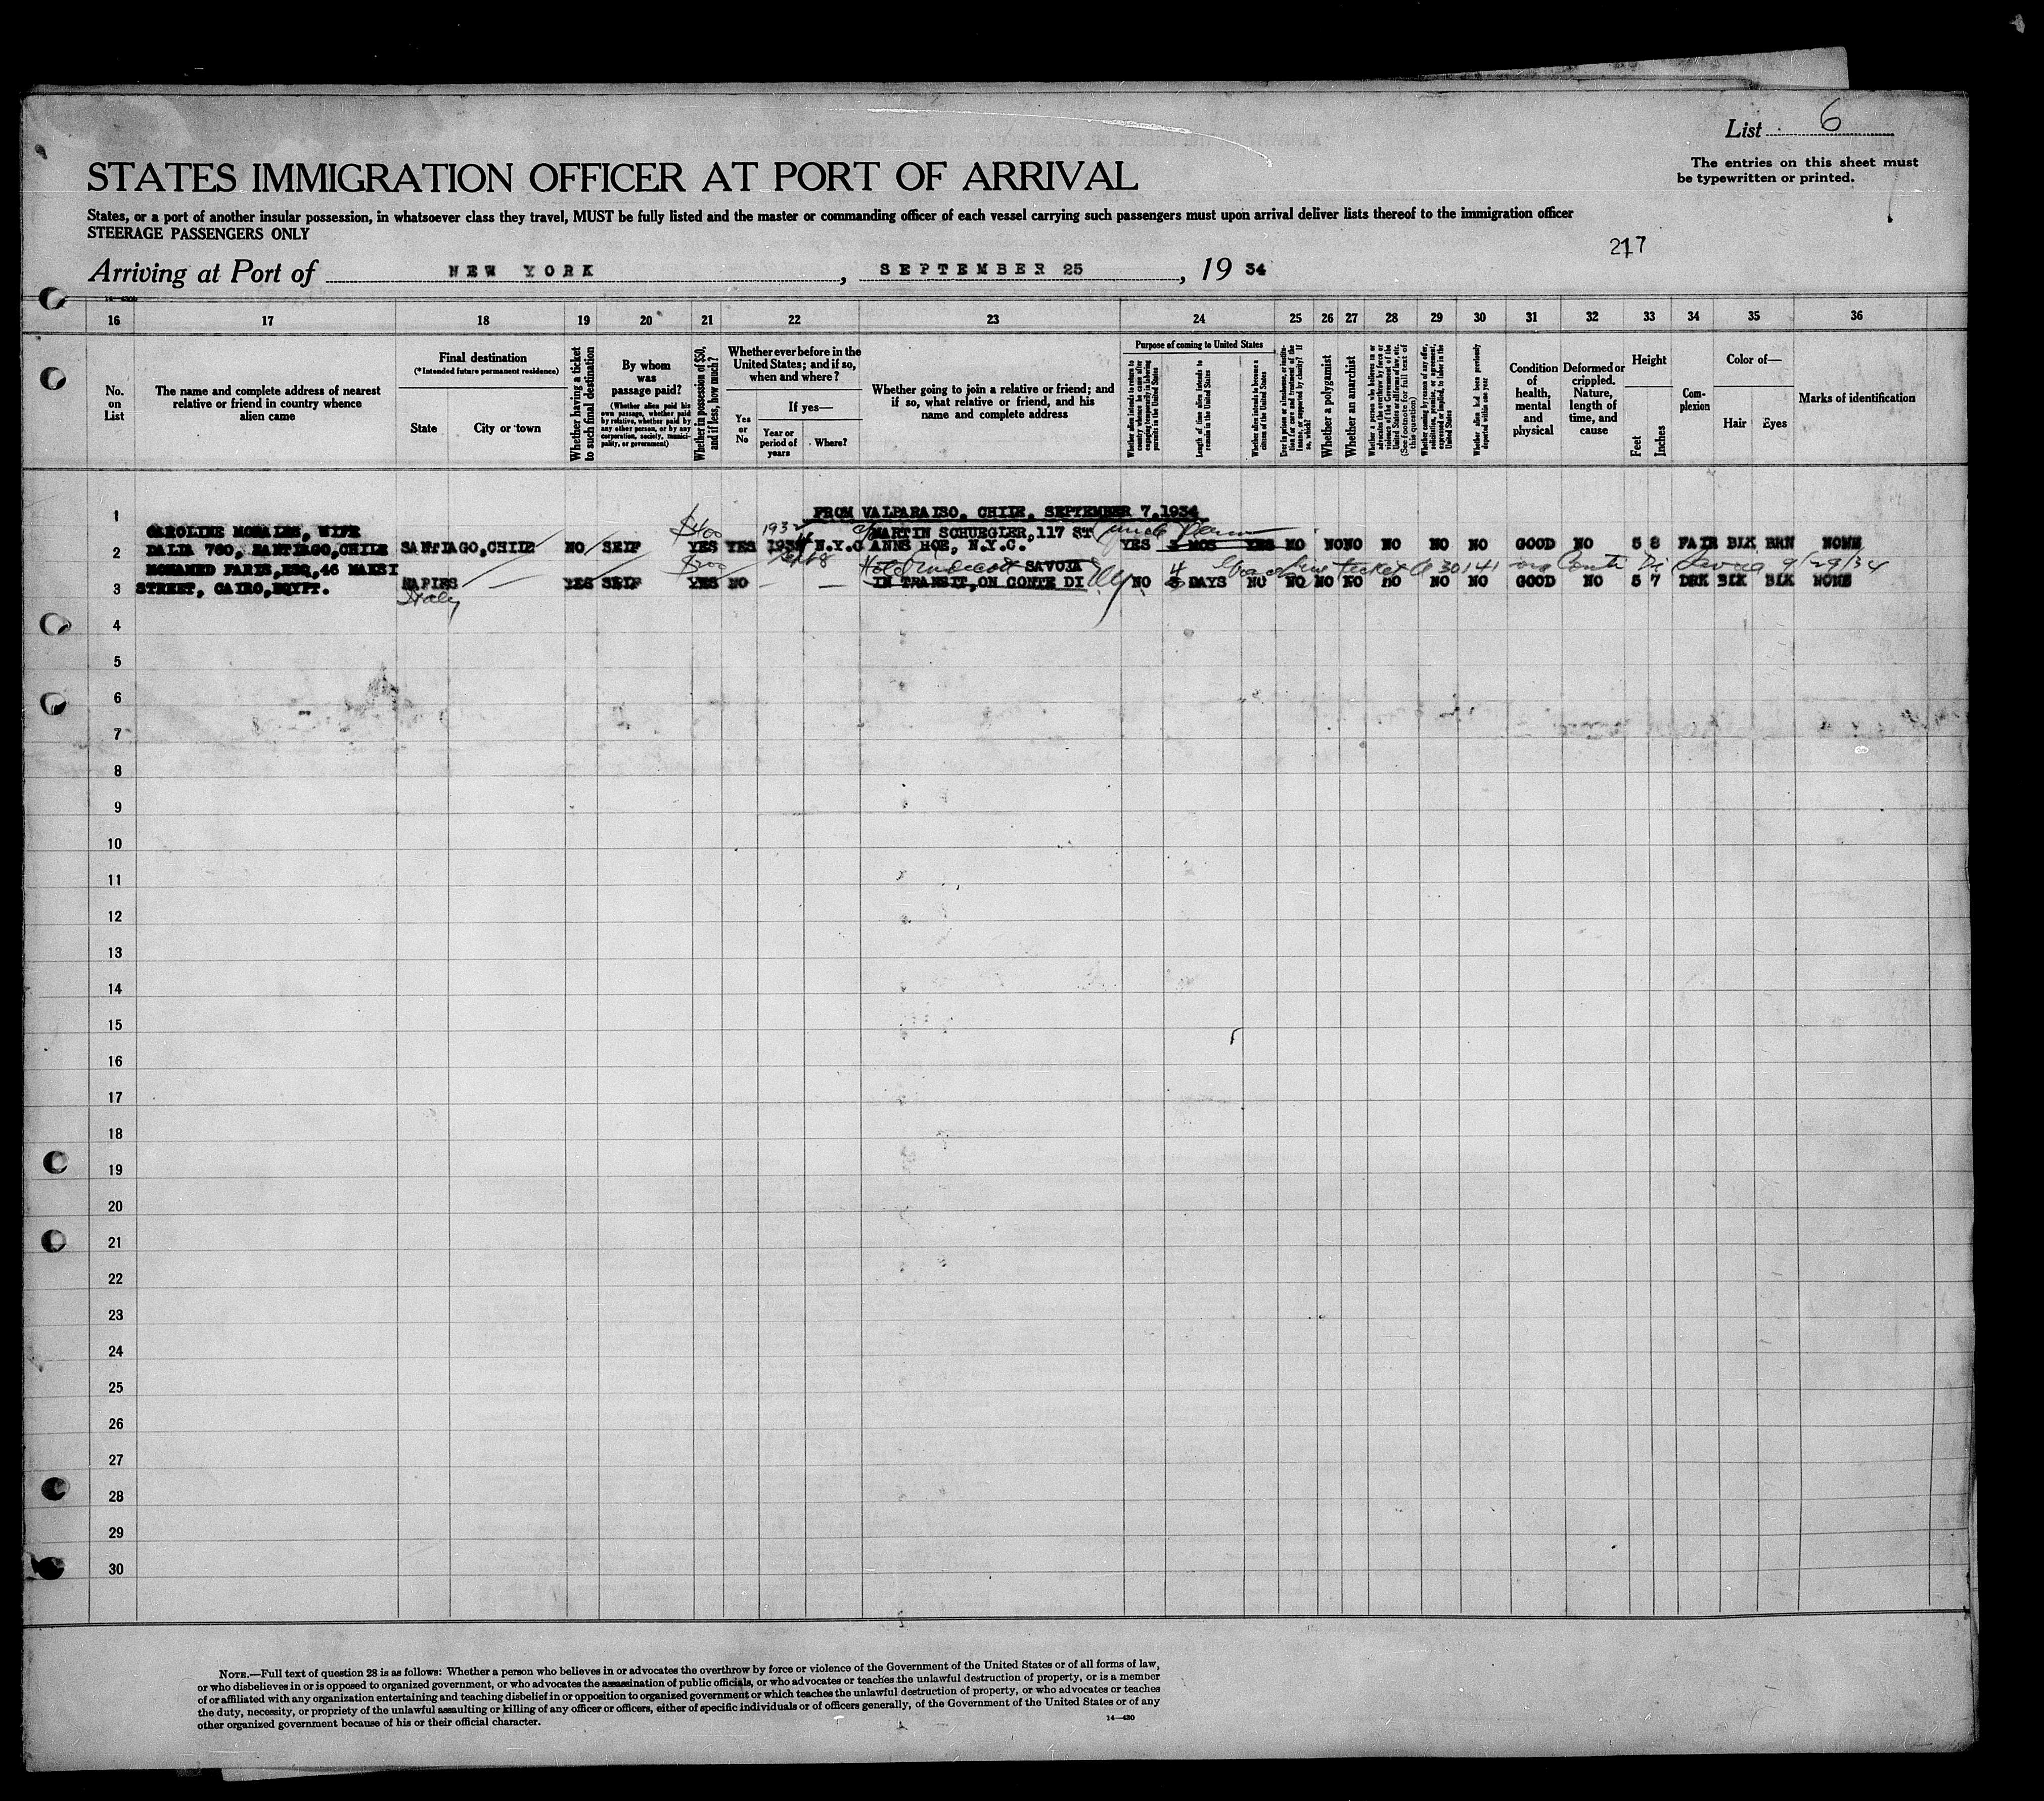 List 6
The entries on this sheet must
be typewritten or printed.
STATES IMMIGRATION OFFICER AT PORT OF ARRIVAL
States, or a port of another insular possession, in whatsoever class they travel, MUST be fully listed and the master or commanding officer of each vessel carrying such passengers must upon arrival deliver lists thereof to the immigration officer
STEERAGE PASSENGERS ONLY
217
Arriving at Port of NEW YORK, SEPTEMBER 25, 19 34
16 17 18 19 20 21 22 23 24 25 26 27 28 29 30 31 32 33 34 35 36
No.
on
List
The name and complete address of nearest
relative or friend in country whence
alien came
Final destination
(*Intended future permanent residence)
State
City or town
Whether having a ticket
to such final destination
By whom
was
passage paid?
(Whether alien paid his
own passage, whether paid
by relative, whether paid by
any other person, or by any
corporation, society, munici-
pality, or government)
Whether in possession of $50,
and if less, how much?
Whether ever before in the
United States; and if so,
when and where?
Yes
or
No
If yes—
Year or
period of
years
Where?
Whether going to join a relative or friend; and
if so, what relative or friend, and his
name and complete address
Purpose of coming to United States
Whether alien intends to return to
country whence he came after
engaging temporarily in laboring
pursuits in the United States
Length of time alien intends to
remain in the United States
Whether alien intends to become a
citizen of the United States
Ever in prison or almshouse, or institu-
tion for care and treatment of the
insane, or supported by charity? If
so, which?
Whether a polygamist
Whether an anarchist
Whether a person who believes in or
advocates the overthrow by force or
violence of the Government of the
United States or all forms of law, etc.
(See footnote for full text of
this question)
Whether coming by reason of any offer,
solicitation, promise, or agreement,
expressed or implied, to labor in the
United States
Whether alien had been previously
deported within one year
Condition
of
health,
mental
and
physical
Deformed or
crippled.
Nature,
length of
time, and
cause
Height
Feet
Inches
Com-
plexion
Color of—
Hair
Eyes
Marks of identification
1 FROM VALPARAISO, CHILE, SEPTEMBER 7,1934
CAROLINE MORALES, WIFE $400 1932 MARTIN SCHUEGLER,117 ST uncle
2 DALIA 760, SANTIAGO,CHILE SANTIAGO,CHILE NO SELF YES YES 1934 N.Y.C ANNS HOE, N.Y.C. YES 3 MOS YES NO NO NO NO NO NO GOOD NO 5 8 FAIR BLK BRN NONE
MOHAMED FARIS,ESQ,46 MAKSI $200 SAVOIA 4 ticket 30141 Conti Di 9/29/34
3 STREET, CAIRO,EGYPT. NAPLES YES SELF YES NO — — IN TRANSIT,ON CONTE DI NO 3 DAYS NO NO NO NO NO NO NO GOOD NO 5 7 DRK BLK BLK NONE
Italy
4
5
6
7
8
9
10
11
12
13
14
15
16
17
18
19
20
21
22
23
24
25
26
27
28
29
30
NOTE.—Full text of question 28 is as follows: Whether a person who believes in or advocates the overthrow by force or violence of the Government of the United States or of all forms of law,
or who disbelieves in or is opposed to organized government, or who advocates the assassination of public officials, or who advocates or teaches the unlawful destruction of property, or is a member
of or affiliated with any organization entertaining and teaching disbelief in or opposition to organized government or which teaches the unlawful destruction of property, or who advocates or teaches
the duty, necessity, or propriety of the unlawful assaulting or killing of any officer or officers, either of specific individuals or of officers generally, of the Government of the United States or of any
other organized government because of his or their official character.
14—430